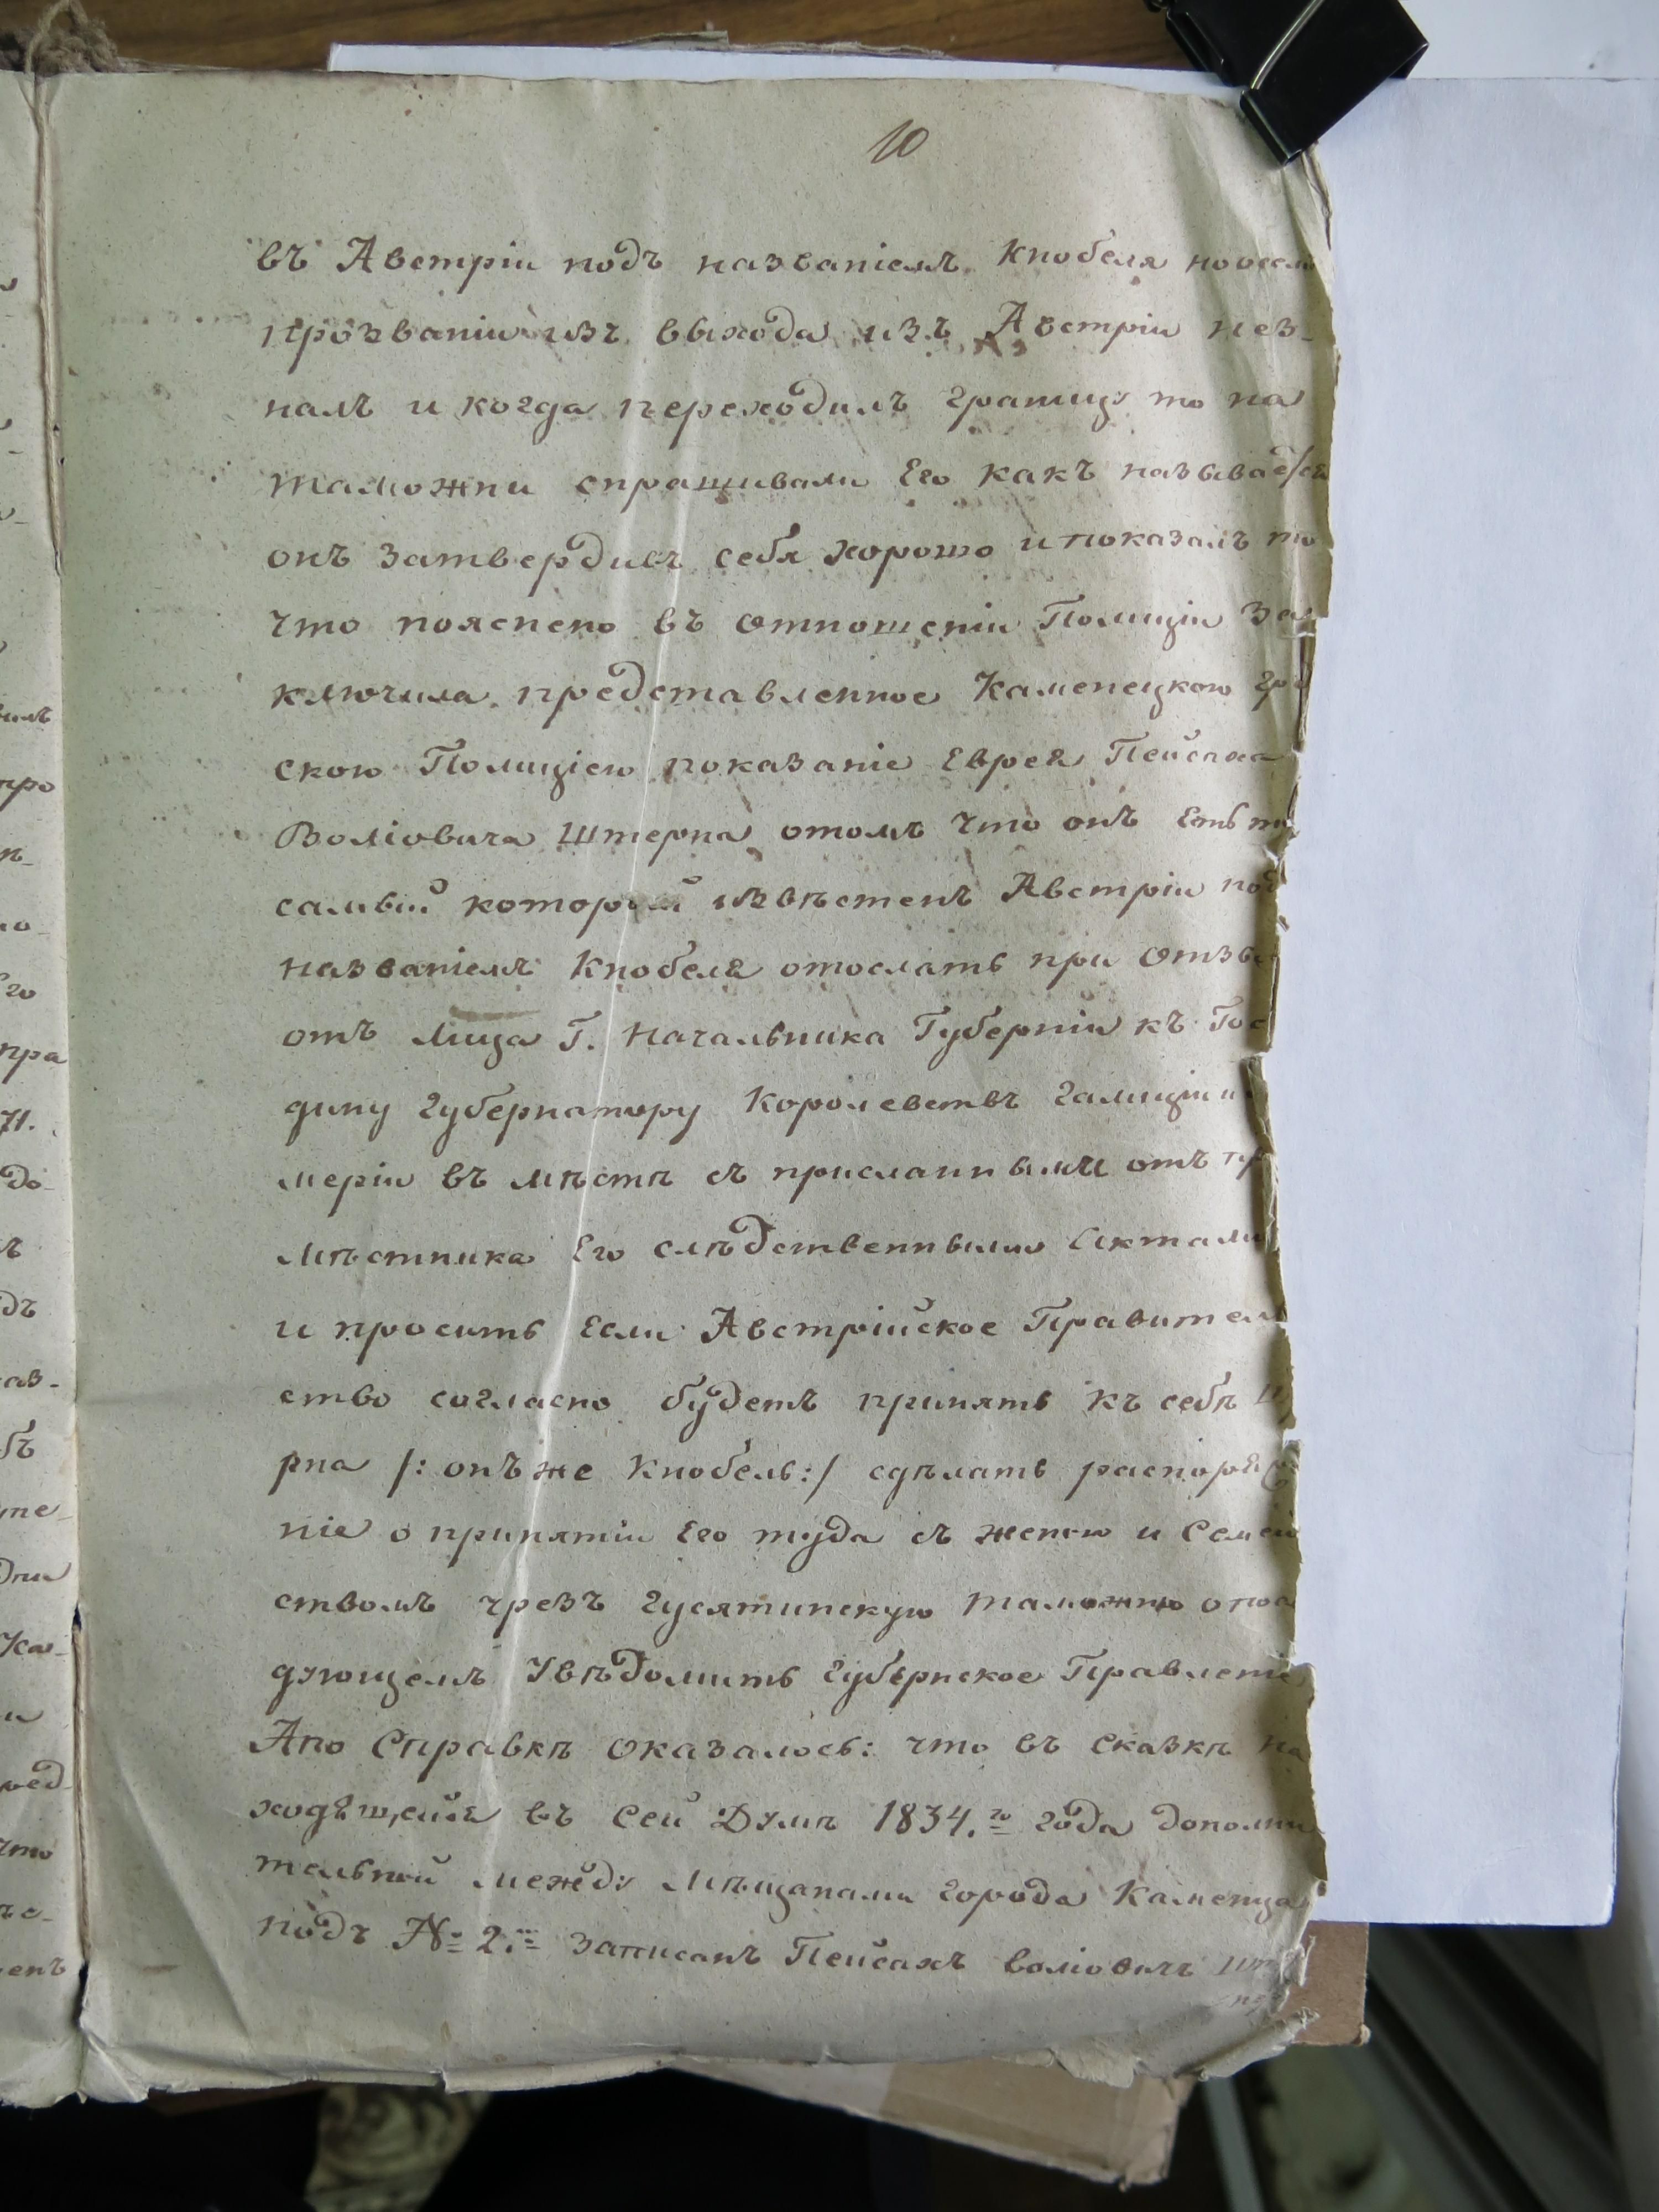 10
въ Австріи подъ названіемъ Кнобеля но о семъ
прозваніи изъ выхода изъ Австріи нез-
налъ и когда переходилъ границу то на
таможни спрашивали Его какъ называется
онъ затвердивъ себя хорошо и показалъ то
что пояснено въ отношеніи Полиціи За
ключила представленное Каменецкою гра
скою Полиціею показаніе Еврея Пейсаха
Воліовича Штерна отомъ что онъ Есть
самый который извѣстенъ Австріи под
названіемъ Кнобеля отослать при Отзы
отъ Лица Г. Начальника Губерніи къ Гос
дину Губернатору Королевствъ Галиціи и
меріи въ мѣстѣ съ присланными отъ
мѣстника Его слѣдственными Актами
и просить Если Австрійское Правитель
ство согласно будетъ принять къ себѣ
рна /: онъ же Кнобель :/ сдѣлать распоря
ніе о принятіи Его туда съ женою и Семей
ствомъ чрезъ Гусятинскую таможню о посл
дующемъ Увѣдомить Губернское Правленіе
Апо Справкѣ оказалось: что въ Сказкѣ на
ходящейся въ Сей Думѣ 1834.го года дополни
тельной между Мѣщанами города Каменца
подъ № 2.мъ записанъ Пейсахъ Воліовичъ